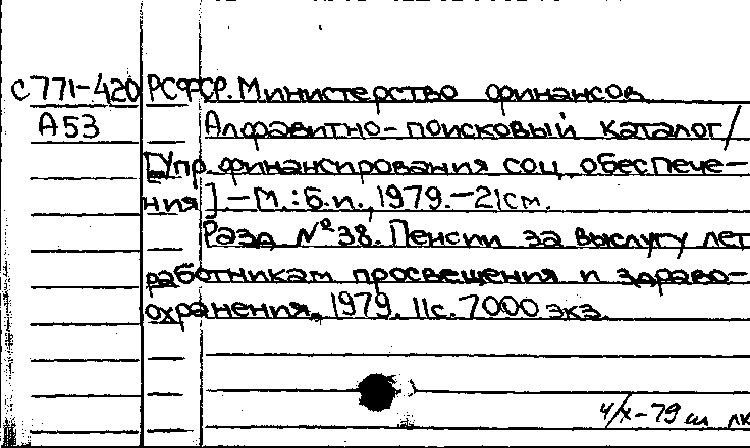 с771-420 РСФСР. Министерство финансов
А53 Алфавитно-поисковый каталог/
[Упр. финансирования соц. обеспече-
ния] - М.: Б.и., 1979. - 21см.
Разд №38. Пенсии за выслугу лет
работникам просвещения и здраво-
охранения. 1979. 11с. 7000 экз.
4/X-79